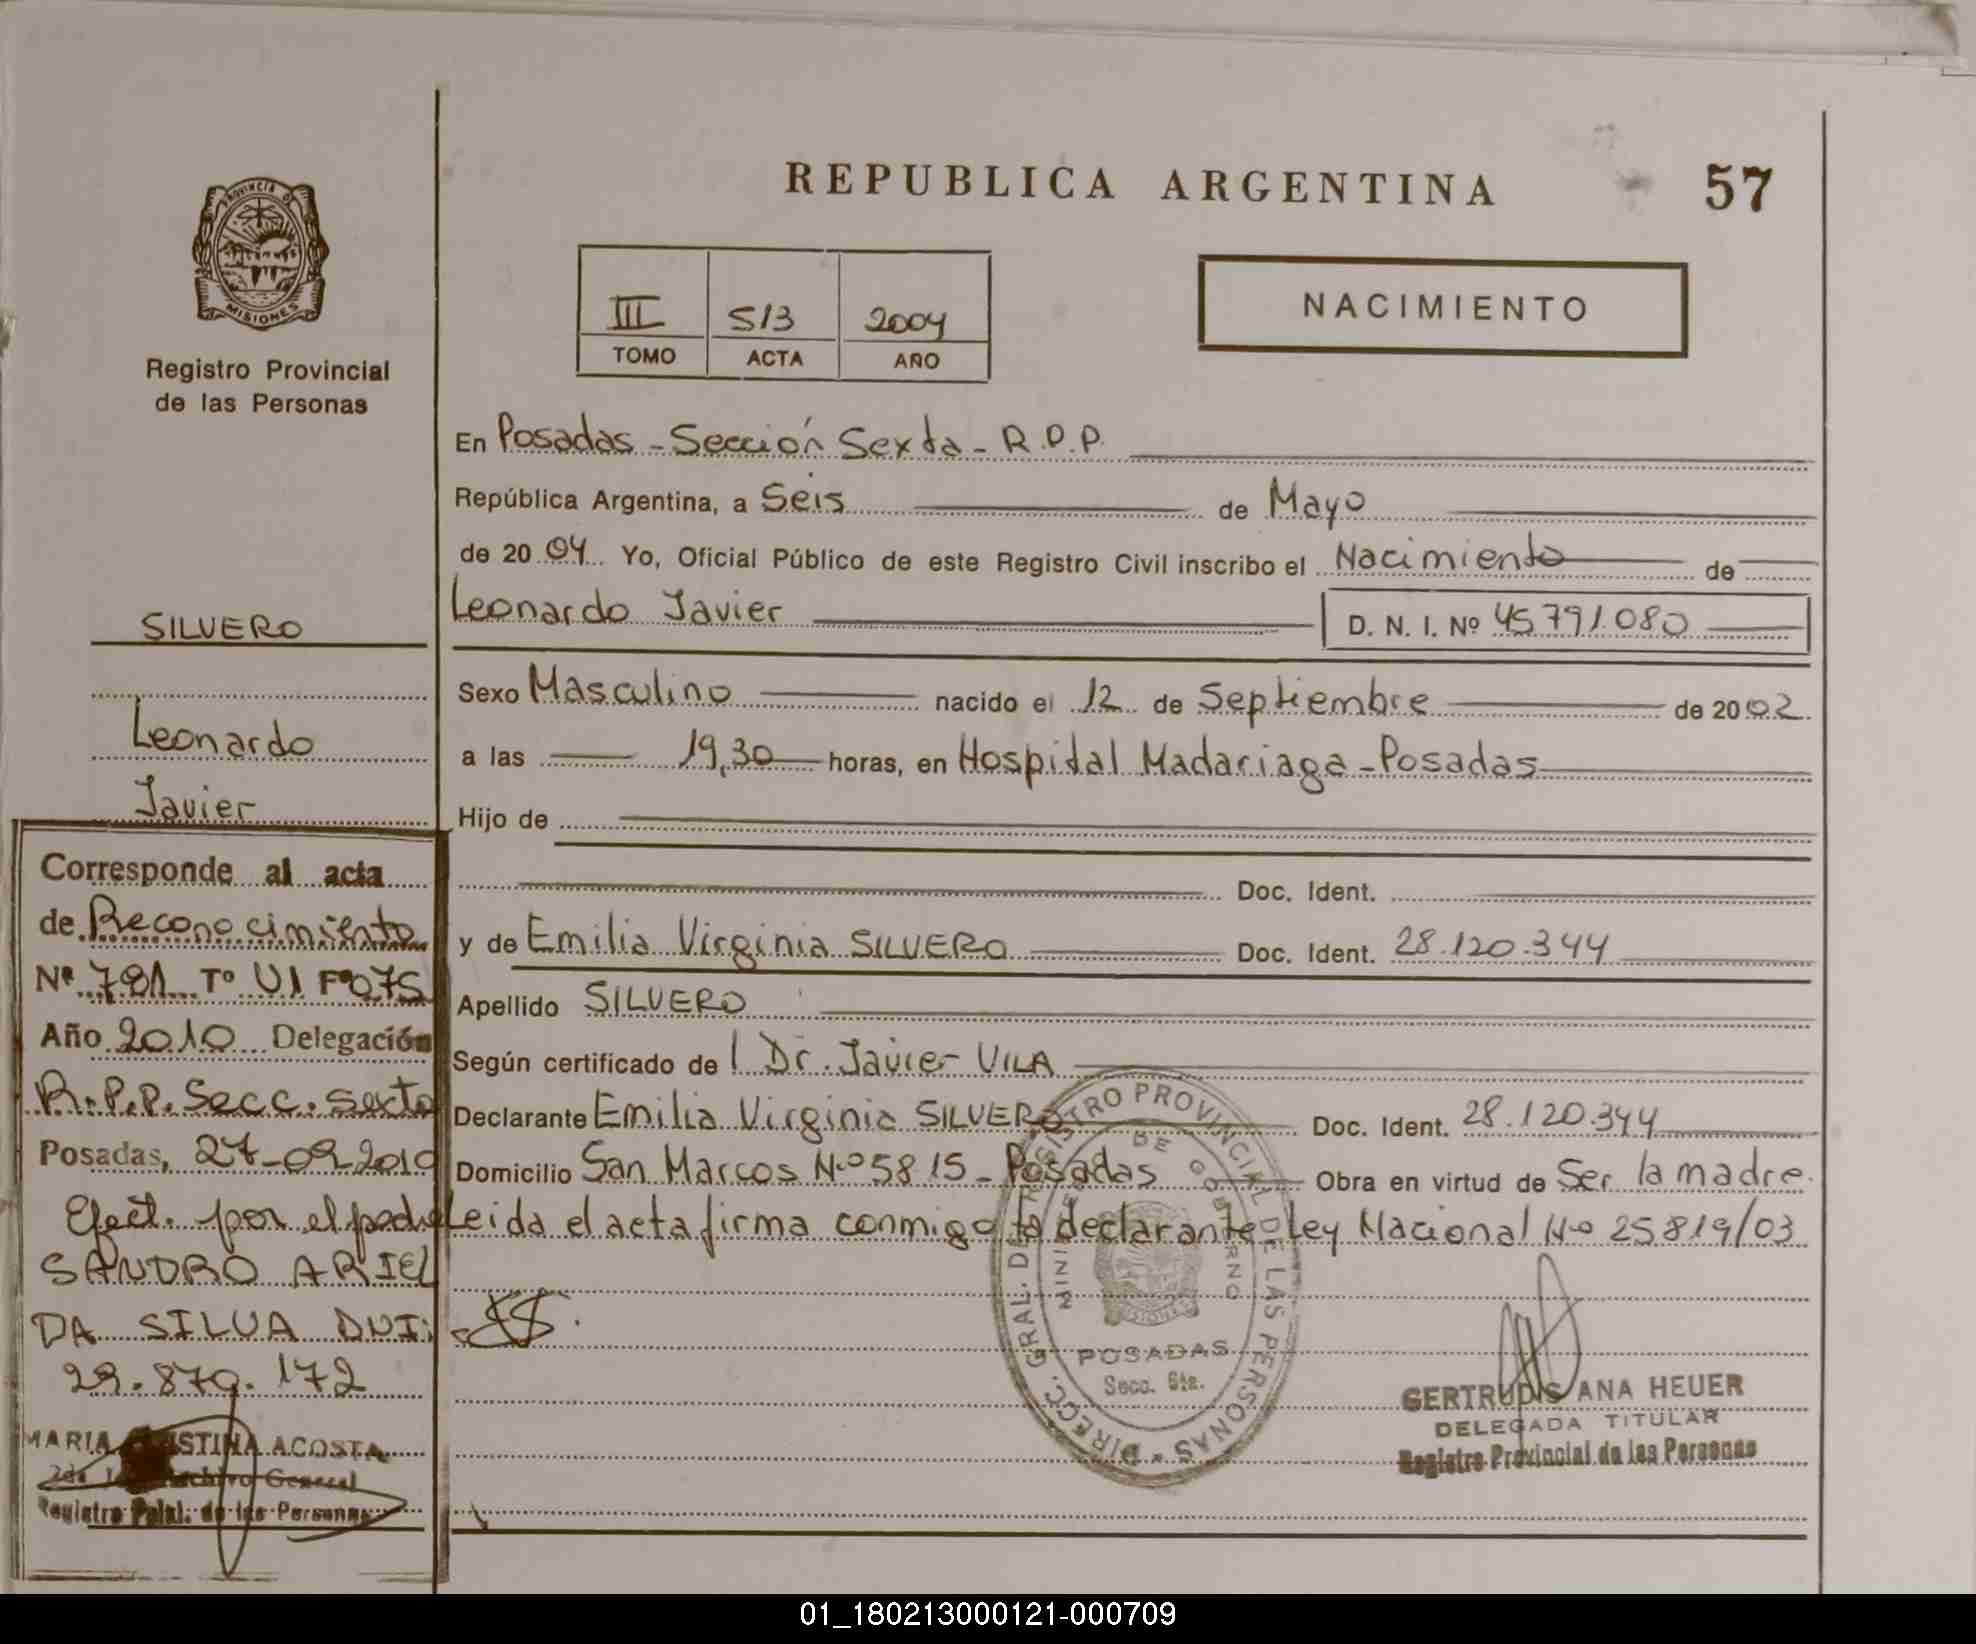 REPUBLICA ARGENTINA
57
PROVINCIA DE
MISIONES
Registro Provincial
de las Personas
III 513 2004
TOMO ACTA AÑO
NACIMIENTO
En Posadas - Sección Sexta - R.P.P.
República Argentina, a Seis de Mayo
de 20 04 Yo, Oficial Público de este Registro Civil inscribo el Nacimiento de
Leonardo Javier D. N. I. Nº 45.791.080
Sexo Masculino nacido el 12 de Septiembre de 2002
a las 19,30 horas, en Hospital Madariaga - Posadas
Hijo de
Doc. Ident.
y de Emilia Virginia SILVERO Doc. Ident. 28.120.344
Apellido SILVERO
Según certificado de l Dr. Javier VILA
Declarante Emilia Virginia SILVERO Doc. Ident. 28.120.344
Domicilio San Marcos Nº 5815 - Posadas Obra en virtud de Ser la madre.
Leida el acta firma conmigo la declarante Ley Nacional Nº 25819/03
SILVERO
Leonardo
Javier
Corresponde al acta
de Reconocimiento
Nº 781 Tº VI Fº 075
Año 2010 Delegación
R.P.P. Secc. Sexta
Posadas, 27-09-2010
Efect. por el padre
SANDRO ARIEL
DA SILVA DNI:
29.879.172
MARIA ISTINA ACOSTA
Archivo General
Registro Pcial. de las Personas
DIRECC. GRAL. DE REGISTRO PROVINCIAL DE LAS PERSONAS
MINISTERIO DE GOBIERNO
MISIONES
POSADAS
Secc. 6ta.
GERTRUDIS ANA HEUER
DELEGADA TITULAR
Registro Provincial de las Personas
01_180213000121-000709